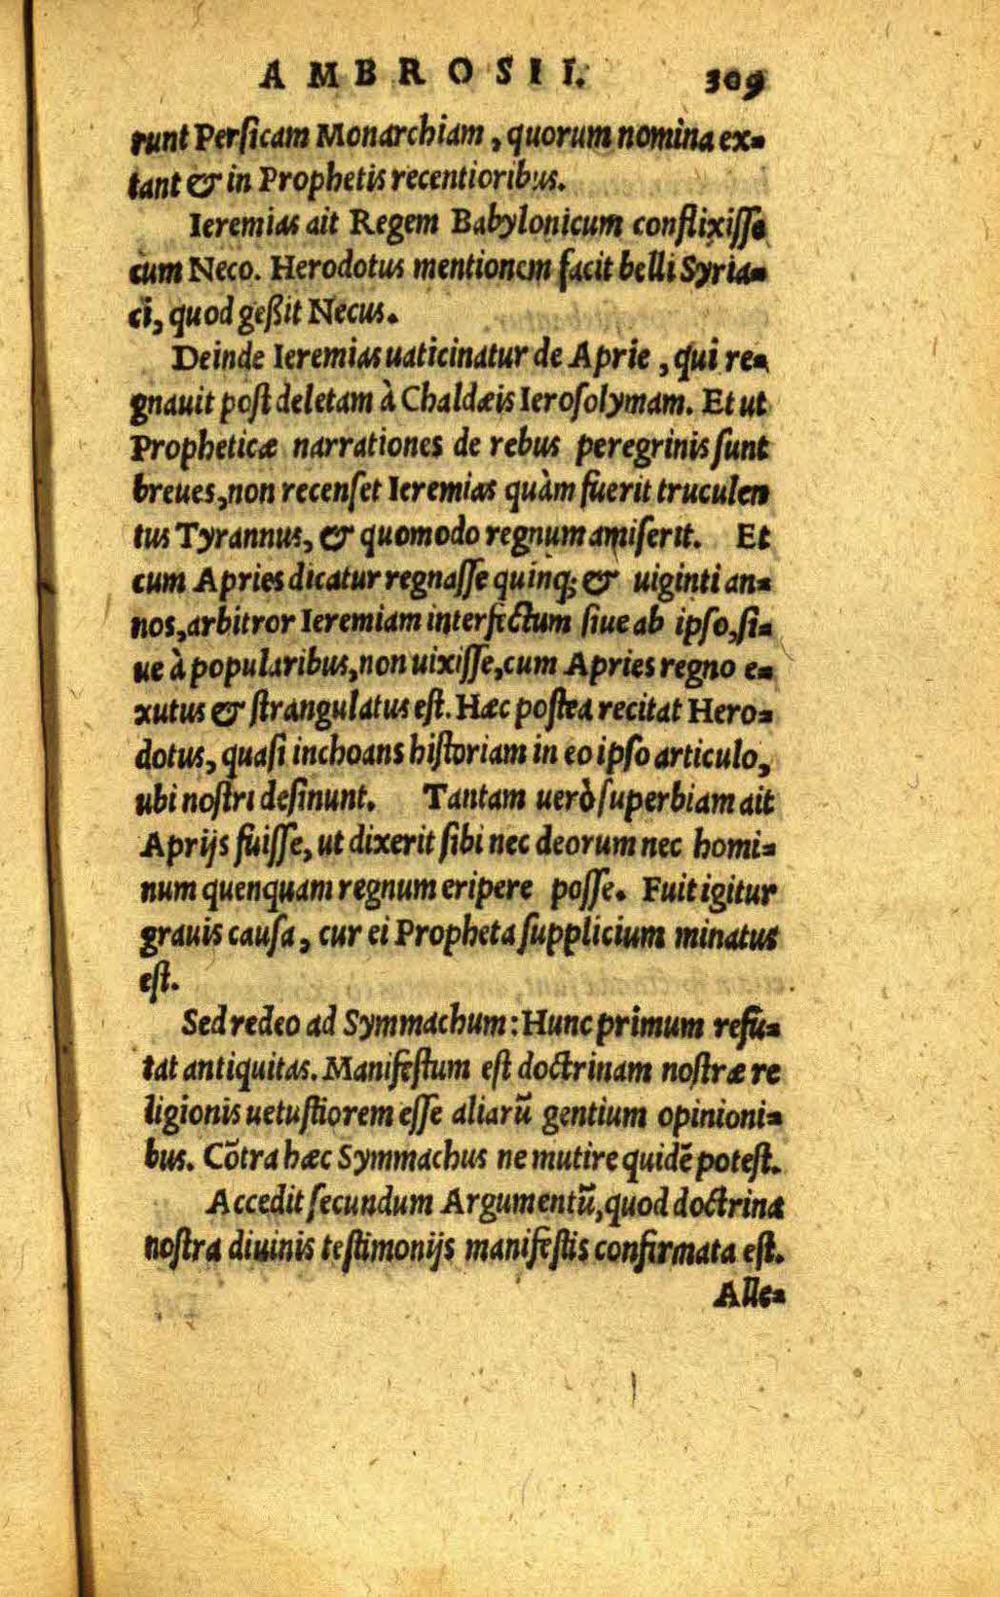 AMBROSII. 309
runt Persicam Monarchiam, quorum nomina ex-
tant & in Prophetis recentioribus.
Ieremias ait Regem Babylonicum conflixisse
cum Neco. Herodotus mentionem facit belli Syria-
ci, quod geßit Necus.
Deinde Ieremias uaticinatur de Aprie, qui re-
gnauit post deletam à Chaldæis Ierosolymam. Et ut
Propheticæ narrationes de rebus peregrinis sunt
breues, non recenset Ieremias quàm fuerit truculen
tus Tyrannus, & quomodo regnum amiserit. Et
cum Apries dicatur regnasse quinq; & uiginti an-
nos, arbitror Ieremiam interfectum siue ab ipso, si-
ue à popularibus, non uixisse, cum Apries regno e-
xutus & strangulatus est. Hæc postea recitat Hero-
dotus, quasi inchoans historiam in eo ipso articulo,
ubi nostri desinunt. Tantam uerò superbiam ait
Aprijs fuisse, ut dixerit sibi nec deorum nec homi-
num quenquam regnum eripere posse. Fuit igitur
grauis causa, cur ei Propheta supplicium minatus
est.
Sed redeo ad Symmachum: Hunc primum refu-
tat antiquitas. Manifestum est doctrinam nostræ re
ligionis uetustiorem esse aliarũ gentium opinioni-
bus. Cõtra hæc Symmachus ne mutire quidẽ potest.
Accedit secundum Argumentũ, quod doctrina
nostra diuinis testimonijs manifestis confirmata est.
Alle-